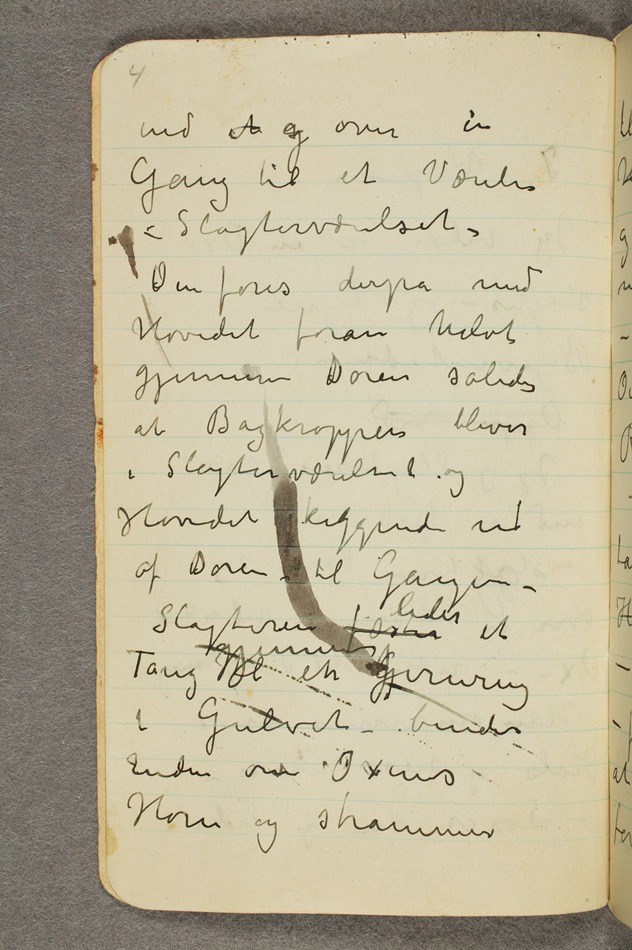 4
ind og over en
Gang til et Værelse
– Slagterværelset –
Den føres derpa med
Hovedet foran halvt
gjennem Doren saledes
at Bagkroppen bliver
i Slagterværelset og
Hovedet kiggende ud
af Doren til Gangen –
leder
Slagteren fæster et
gjennem
Taug til en Gjennring
i Gulvet – binder
Enden om Oxens
Horn og strammer